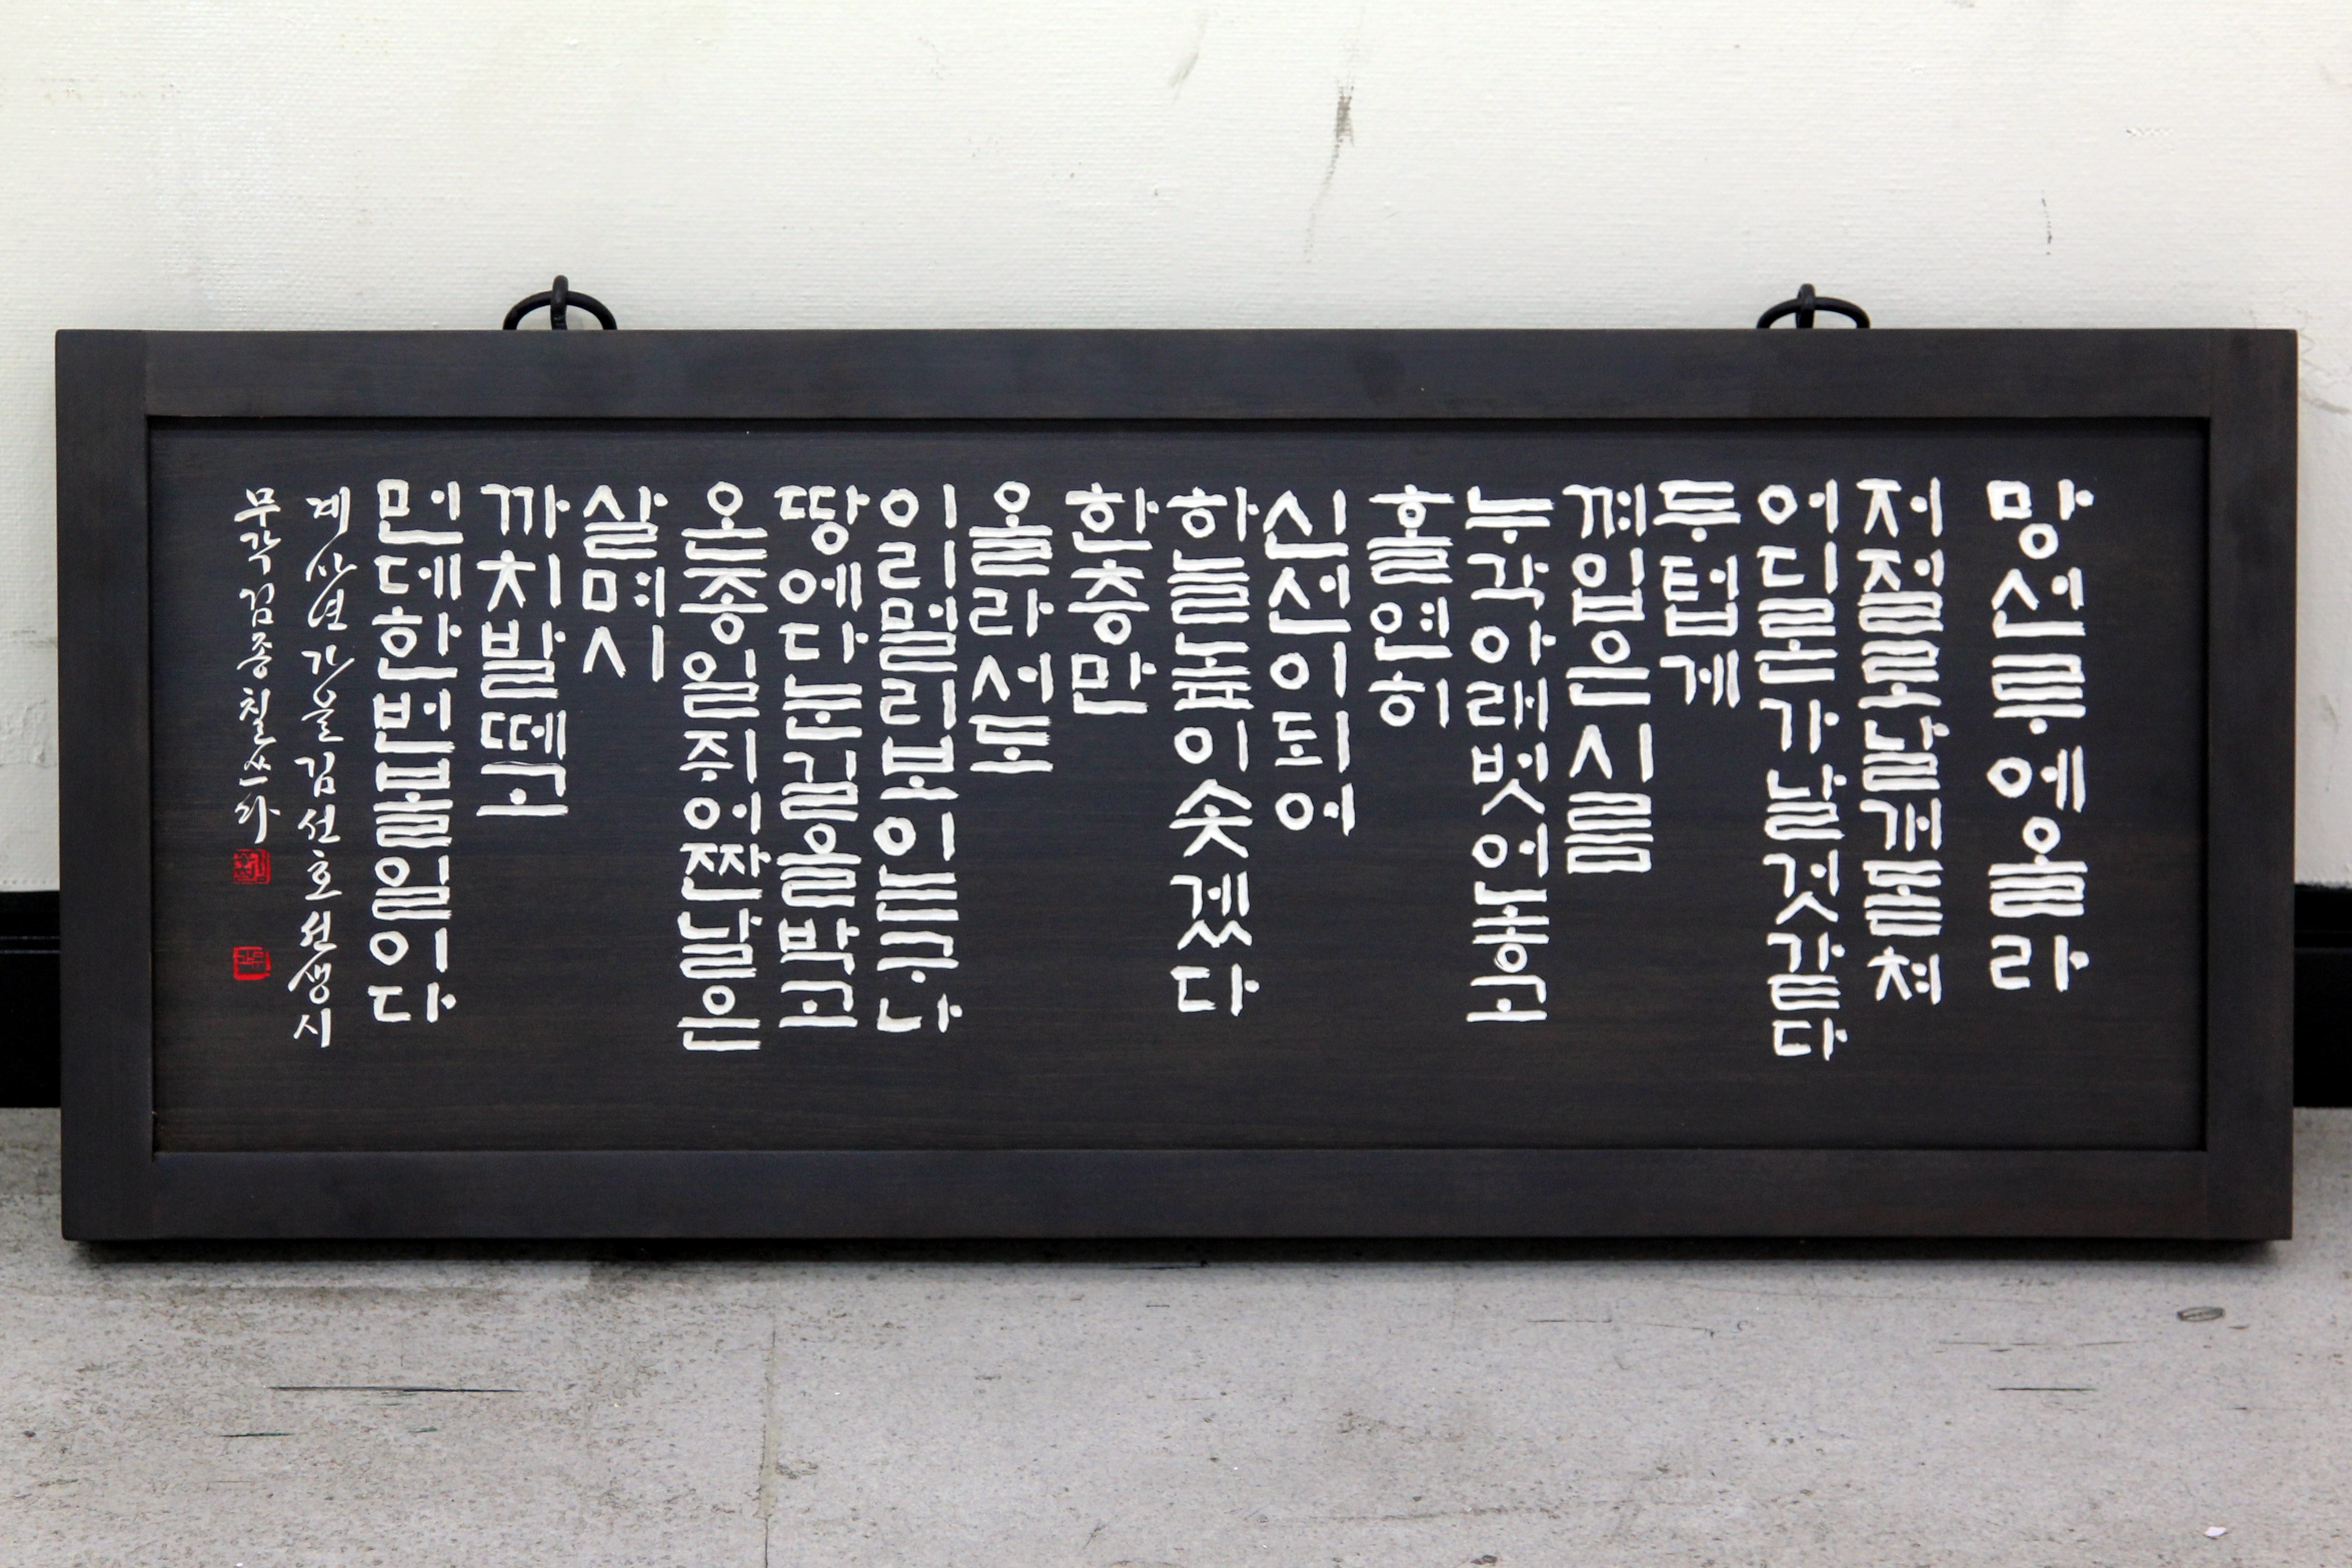 망선루에올라
저절로날개돋쳐
어디론가날것같다
두텁게
껴입은시름
누각아래벗어놓고
홀연히
신선이되어
하늘높이솟겠다
한층만
올라서도
이리멀리보이는구나
땅에다눈길을박고
온종일쥐어짠날은
살며시
까치발떼고
먼데한번볼일이다
계사년가을김선호선생시
무각김종칠쓰다